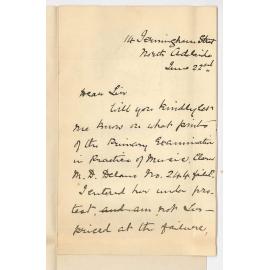 14 Jerningham Street
North Adelaide
June 22nd
Dear Sir
Will you kindly let
me know on what points
of the Primary Examination
in Practice of Music, Clara
M. D. Deland No. 244 failed.
I entered her under pro-
test, and am not sur-
prised at the failure,